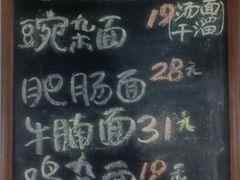 豌杂面 19 汤面
干溜
肥肠面 28元
牛腩面 31元
鸡杂面 19元